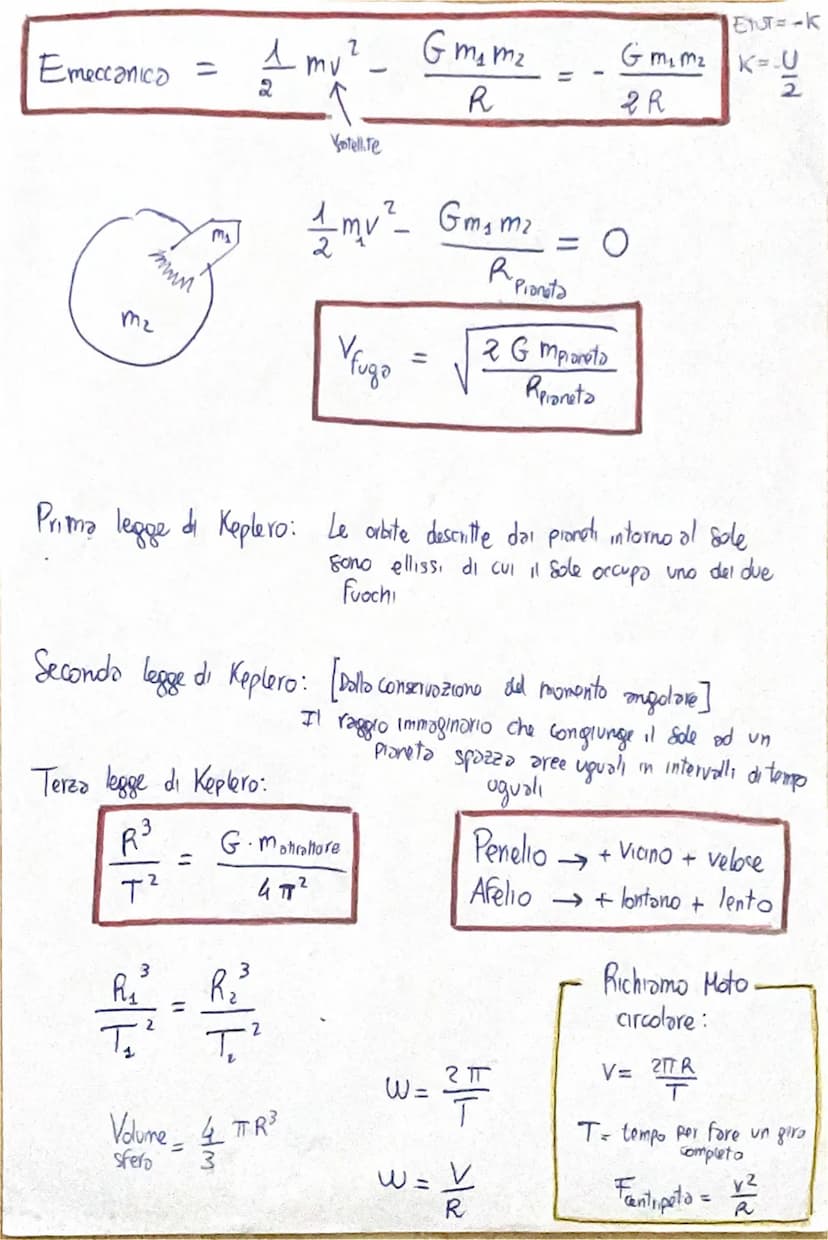 Emeccanica = 1/2 mv² - G m₁ m₂ / R = - G m₁ m₂ / 2R
Etot = -K
K = -U/2
Vsatellite
m₁
m₂
1/2 m₁v² - G m₁ m₂ / R Pianeta = 0
Vfuga = √(2 G mpianeta / Rpianeta)
Prima legge di Keplero: Le orbite descritte dai pianeti intorno al Sole
sono ellissi di cui il Sole occupa uno dei due
fuochi
Seconda legge di Keplero: [Dalla conservazione del momento angolare]
Il raggio immaginario che congiunge il Sole ad un
pianeta spazza aree uguali in intervalli di tempo
uguali
Terza legge di Keplero:
R³ / T² = G · mattrattore / 4π²
Perielio → + vicino + veloce
Afelio → + lontano + lento
R₁³ / T₁² = R₂³ / T₂²
Volume sfera = 4/3 πR³
ω = 2π / T
ω = V / R
Richiamo Moto
circolare:
V = 2πR / T
T = tempo per fare un giro
completo
Fcentripeta = v² / R